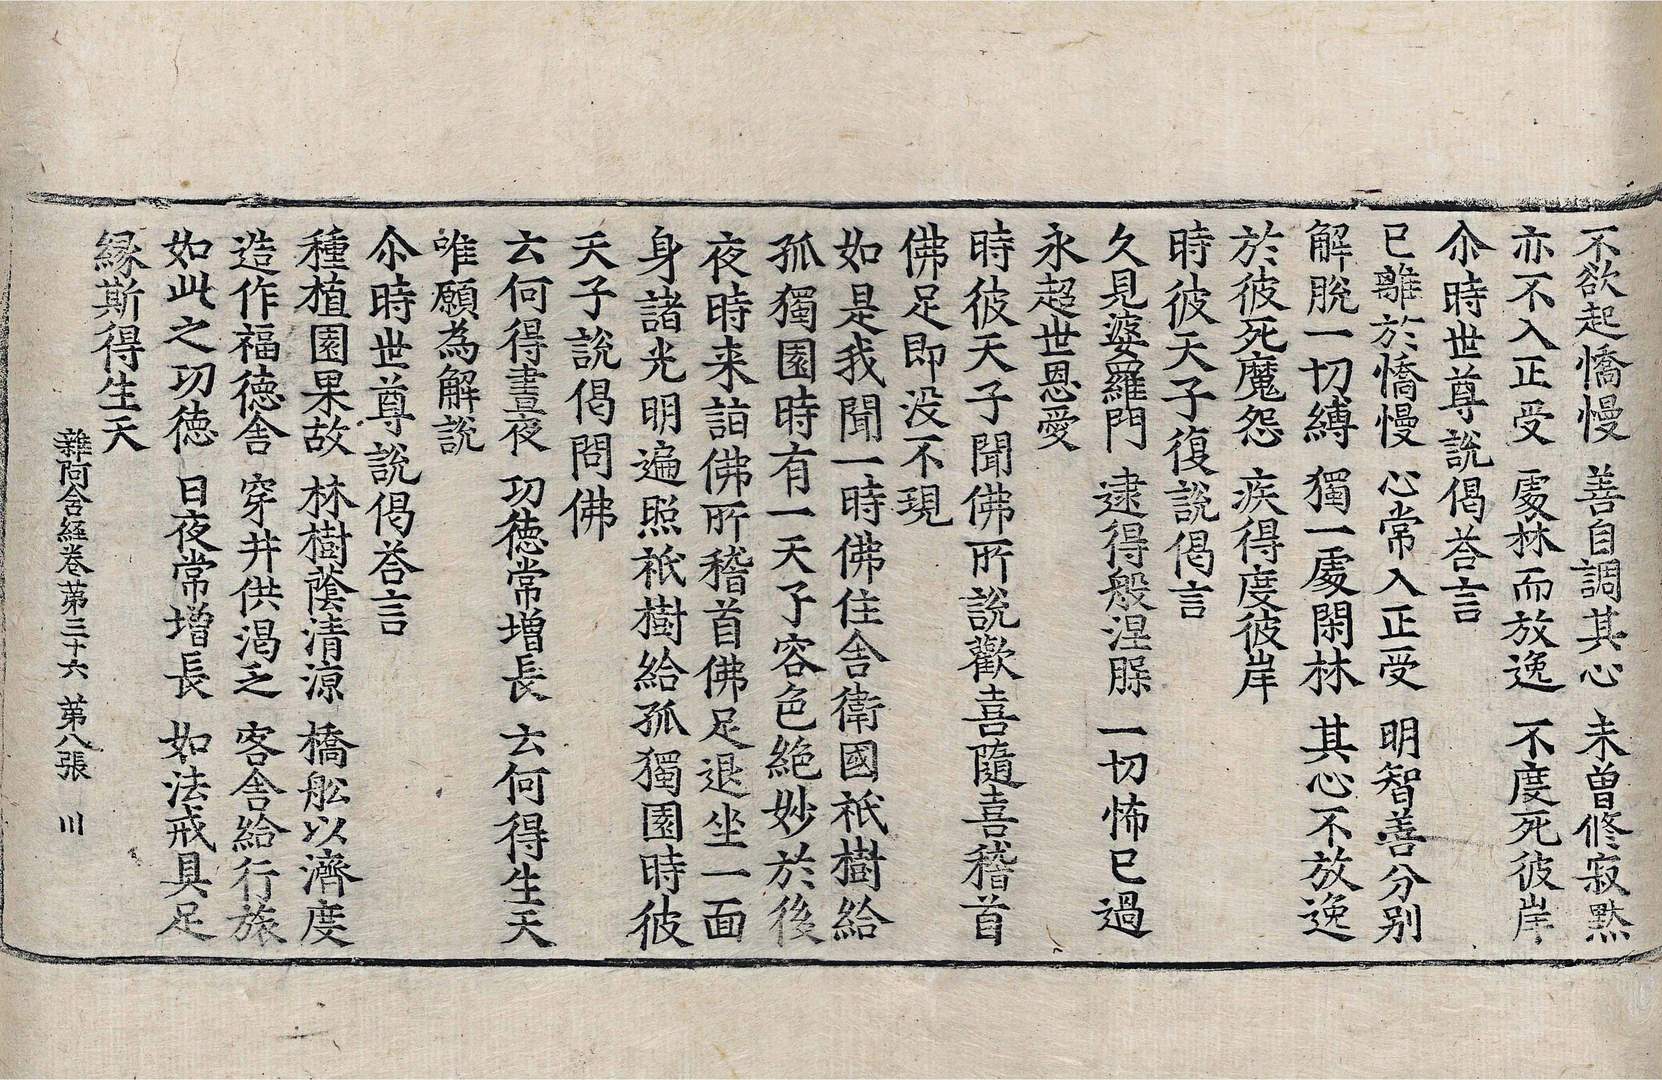 不欲起憍慢 善自調其心 未曽修寂黙
亦不入正受 處林而放逸 不度死彼岸
尒時世尊說偈荅言
已離於憍慢 心常入正受 明智善分別
解脫一切縛 獨一處閑林 其心不放逸
於彼死魔怨 疾得度彼岸
時彼天子復說偈言
久見婆羅門 逮得般涅槃 一切怖已過
永超世恩愛
時彼天子聞佛所說歡喜隨喜稽首
佛足即没不現
如是我聞一時佛住舍衛國祇樹給
孤獨園時有一天子容色絶妙於後
夜時来詣佛所稽首佛足退坐一面
身諸光明遍照祇樹給孤獨園時彼
天子說偈問佛
云何得晝夜 功徳常增長 云何得生天
唯願為解說
尒時世尊說偈荅言
種植園果故 林樹蔭清涼 橋舩以濟度
造作福徳舎 穿井供渴乏 客舎給行旅
如此之功徳 日夜常增長 如法戒具足
縁斯得生天
雜阿含經卷苐三十六 苐八張 川